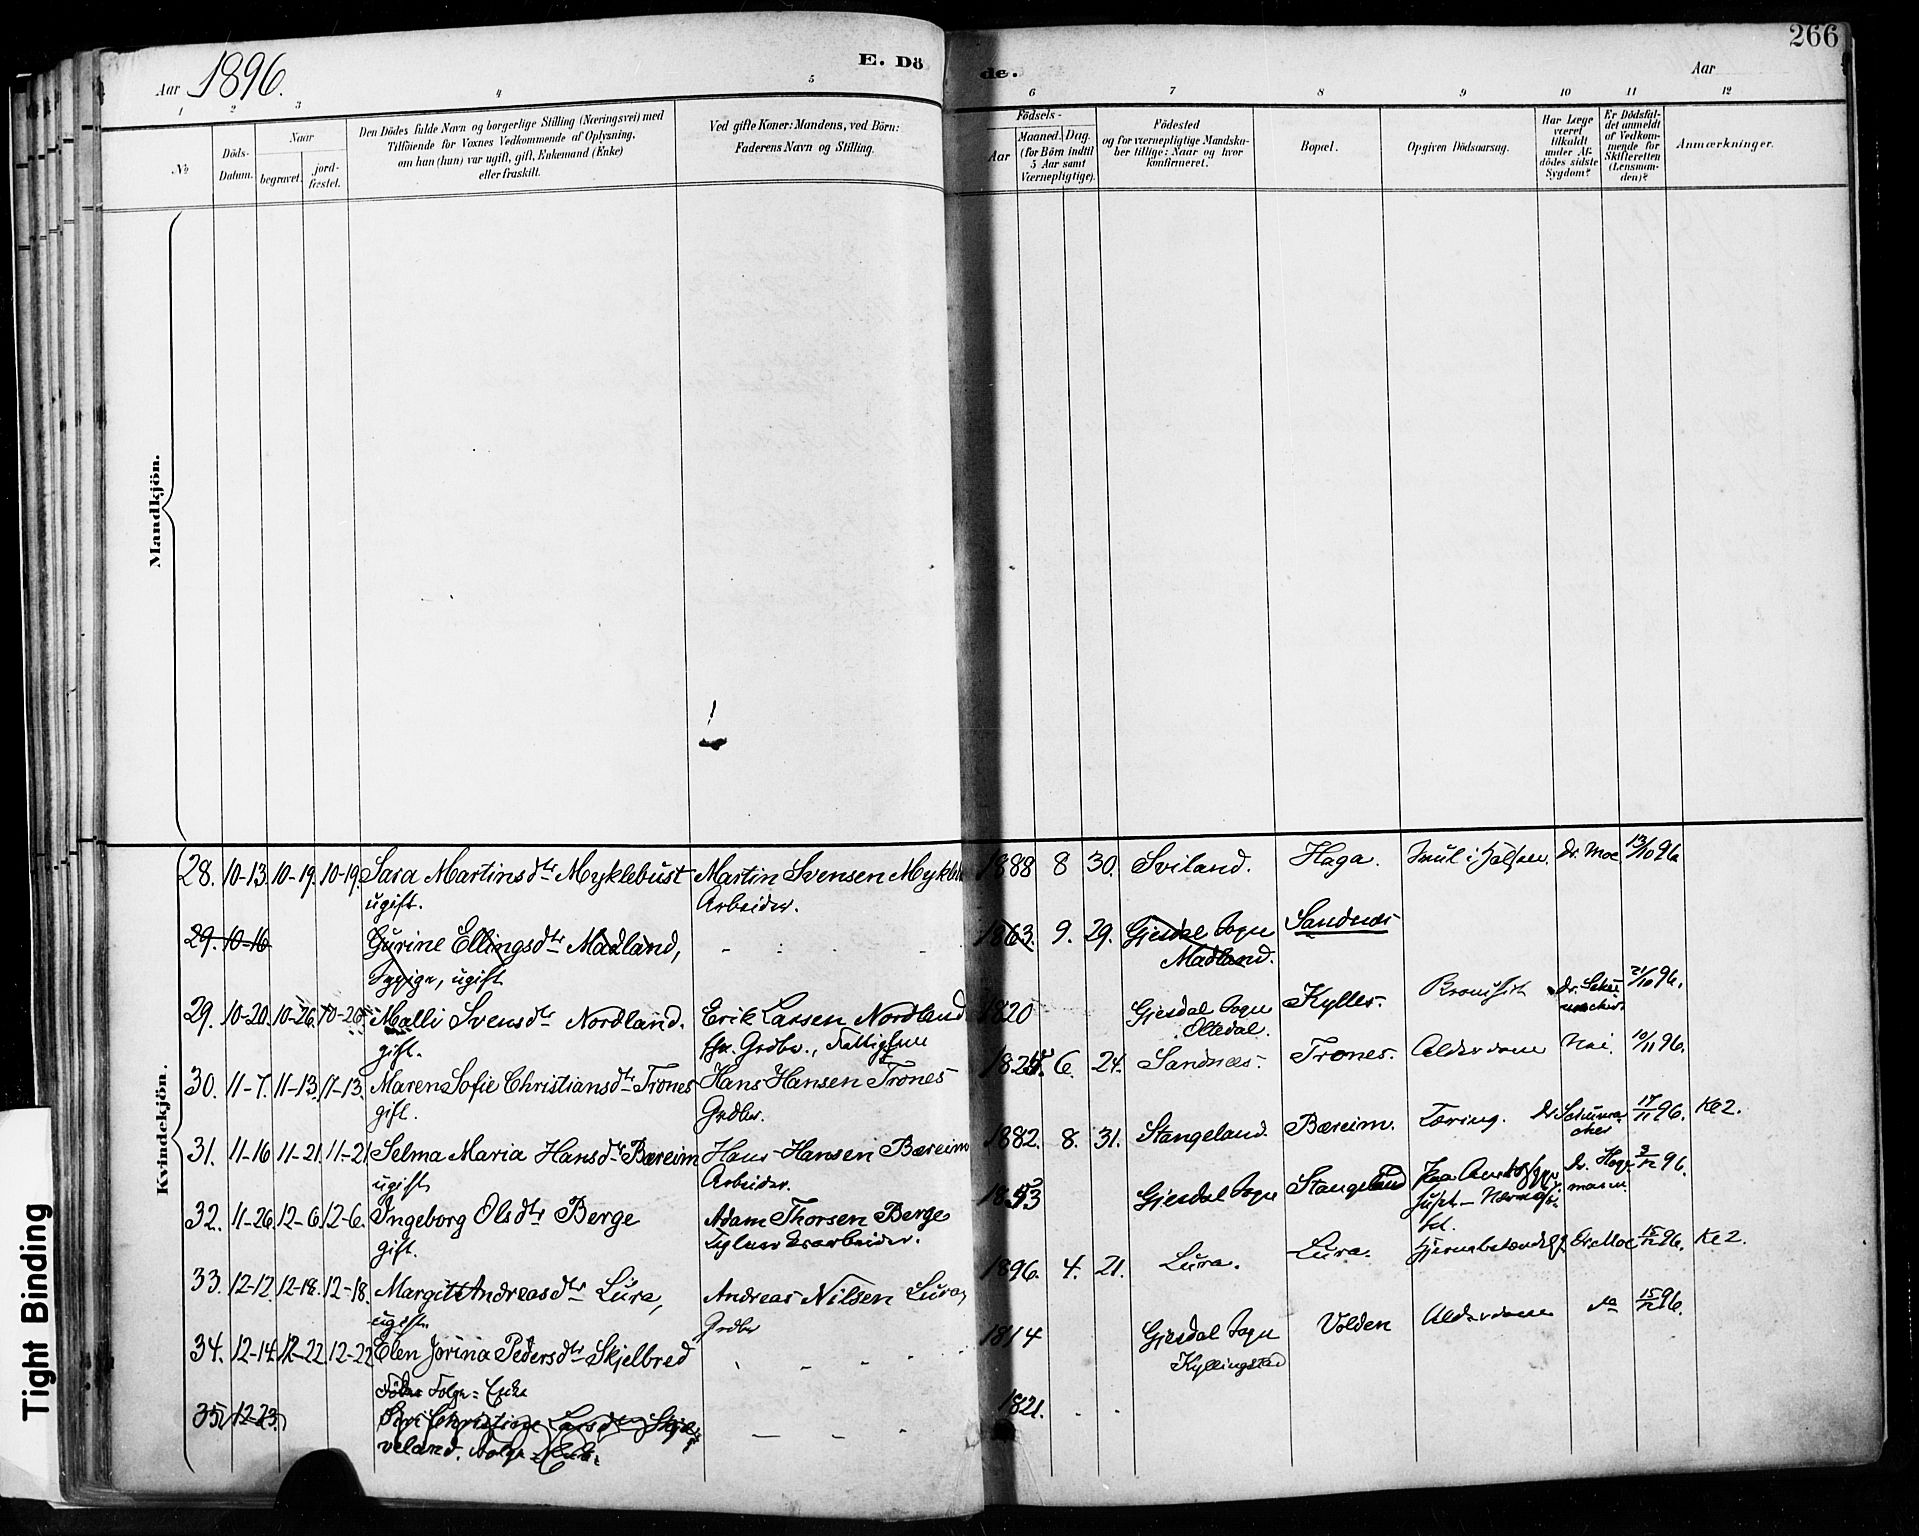 266
Aar 1896.
E. Döde.
Aar
1 2 3 4 5 6 7 8 9 10 11 12
No
Döds-Datum.
Naar
begravet.
jord-fæstet.
Den Dödes fulde Navn og borgerlige Stilling (Næringsvei) med
Tilföiende for Voxnes Vedkommende af Oplysning,
om han (hun) var ugift, gift, Enkemand (Enke)
eller fraskilt.
Ved gifte Koner: Mandens, ved Börn:
Faderens Navn og Stilling.
Födsels-
Aar
Maaned. Dag.
(for Börn indtil
5 Aar samt
Værnepligtige).
Födested
og for værnepligtige Mandska-
ber tillige: Naar og hvor
konfirmeret.
Bopæl.
Opgiven Dödsaarsag.
Har Læge
været
tilkaldt
under Af-
dödes sidste
Sygdom?
Er Dödsfal-
det anmeldt
af Vedkom-
mende for
Skifteretten
(Lensman-
den)?
Anmærkninger.
Mandkjön.
Kvindekjön.
28. 10-13. 10-19. 10-19. Sara Martinsdtr Myklebust Martin Svensen Mykleb 1888 8 30. Sviland. Haga. dr. Moe 13/10 96.
ugift. Arbeider.
29. 10-16 Gurine Ellingsdtr Madland, 1863. 9. 29. Gjesdal Sogn Sandnes
ugift Madland.
29. 10-20. 10-26. 10-26. Malli Svensdtr Nordland. Erik Larsen Nordland 1820 Gjesdal Sogn Kylles. 21/10 96.
gift. Oltedal.
30. 11-7. 11-13. 11-13. Maren Sofie Christiansdtr Trones Hans Hansen Trones 6. 24. Sandnes. Trones. Alderdom Nei. 10/11 96.
gift. Grdbr.
31. 11-16 11-21. 11-21. Selma Maria Hansdtr Bæreim Hans Hansen Bæreim 1882. 8. 31. Stangeland. Bæreim. Tæring. dr. Schuma-cher 17/11 96. Kl 2.
ugift Arbeider.
32. 11-26. 12-6. 12-6. Ingeborg Olsdtr Berge Adam Thorsen Berge Gjesdal Sogn Stangeland 3/12 96.
gift.
33. 12-12. 12-18. 12-18. Margit Andreasdtr Lura, Andreas Nilsen Lura, 1896. 4. 21. Lura. Lura. Dr. Moe 15/12 96. Kl 2.
ugift Grdbr
34. 12-14. 12-22. 12-22 Elen Jorina Pedersdtr Skjelbred 1814 Gjesdal Sogn Volden Alderdom 15/12 96.
Kyllingstad
35. 12-23. 1821.
Tight Binding